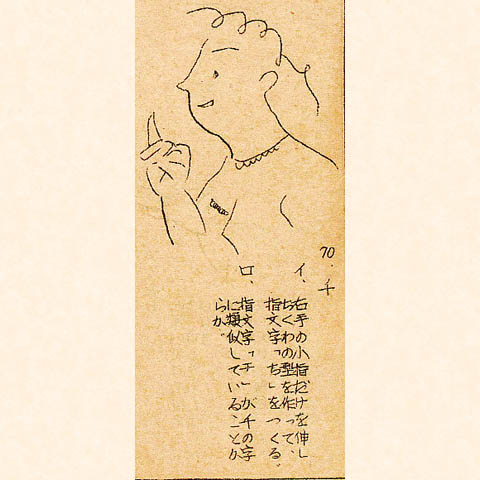 70. 千
イ、右手の小指だけを伸し
ちくわの型を作って、
指文字「ち」をつくる。
ロ、指文字「チ」が千の字
に類似していることか
らか。